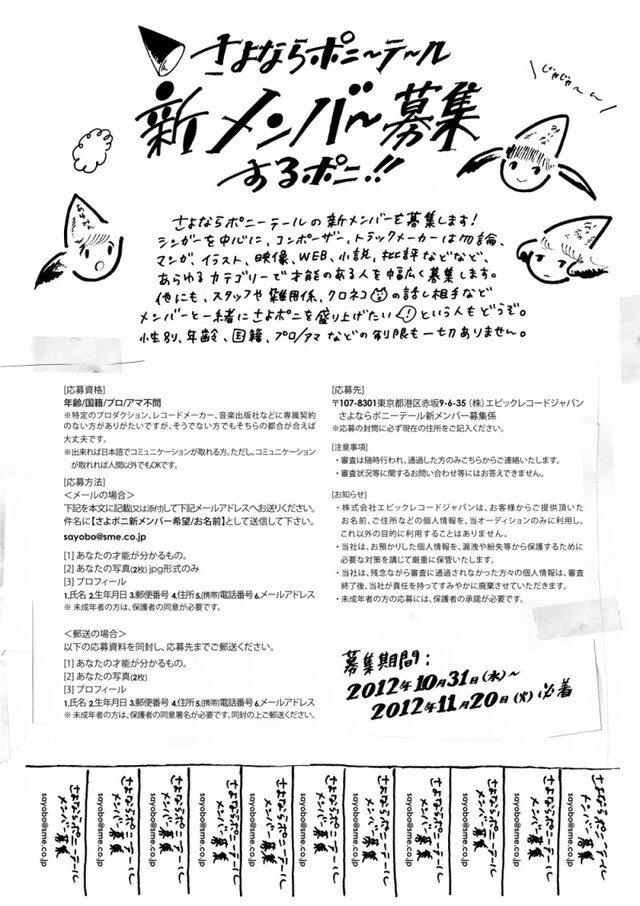 さよならポニーテール
じゃじゃ〜ん
新メンバー募集
するポニ!!
みぃな
あゆみん
さよならポニーテールの新メンバーを募集します!
シンガーを中心に、コンポーザー、トラックメーカーは勿論、
マンガ、イラスト、映像、WEB、小説、批評などなど、
あらゆるカテゴリーで才能のある人を幅広く募集します。
他にも、スタッフや雑用係、クロネコの話し相手など
メンバーと一緒にさよポニを盛り上げたい!という人もどうぞ。
性別、年齢、国籍、プロ/アマなどの制限も一切ありません。
[応募資格]
年齢/国籍/プロ/アマ不問
※特定のプロダクション、レコードメーカー、音楽出版社などに専属契約
のない方がありがたいですが、そうでない方でもそちらの都合が合えば
大丈夫です。
※出来れば日本語でコミュニケーションが取れる方。ただし、コミュニケーション
が取れれば人間以外でもOKです。
[応募方法]
<メールの場合>
下記を本文に記載(又は添付)して下記メールアドレスへお送りください。
件名に【さよポニ新メンバー希望/お名前】として送信して下さい。
sayobo@sme.co.jp
[1] あなたの才能が分かるもの。
[2] あなたの写真(2枚) jpg形式のみ
[3] プロフィール
1.氏名 2.生年月日 3.郵便番号 4.住所 5.(携帯)電話番号 6.メールアドレス
※ 未成年者の方は、保護者の同意が必要です。
<郵送の場合>
以下の応募資料を同封し、応募先までご郵送ください。
[1] あなたの才能が分かるもの。
[2] あなたの写真(2枚)
[3] プロフィール
1.氏名 2.生年月日 3.郵便番号 4.住所 5.(携帯)電話番号 6.メールアドレス
※ 未成年者の方は、保護者の同意署名が必要です。同封の上ご郵送ください。
[応募先]
〒107-8301東京都港区赤坂9-6-35 (株)エピックレコードジャパン
さよならポニーテール新メンバー募集係
※応募の封筒に必ず現在の住所をご記入ください。
[注意事項]
・審査は随時行われ、通過した方のみこちらからご連絡いたします。
・審査状況等に関するお問い合わせ等にはお答えできません。
[お知らせ]
・株式会社エピックレコードジャパンは、お客様からご提供頂いた
お名前、ご住所などの個人情報を、当オーディションのみに利用し、
これ以外の目的に利用することはありません。
・当社は、お預かりした個人情報を、漏洩や紛失等から保護するために
必要な対策を講じて厳重に保管いたします。
・当社は、残念ながら審査に通過されなかった方々の個人情報は、審査
終了後、当社が責任を持ってすみやかに廃棄させていただきます。
・未成年者の方の応募には、保護者の承諾が必要です。
募集期間:
2012年10月31日(水)〜
2012年11月20日(火)必着
さよならポニーテール
メンバー募集
sayobo@sme.co.jp
さよならポニーテール
メンバー募集
sayobo@sme.co.jp
さよならポニーテール
メンバー募集
sayobo@sme.co.jp
さよならポニーテール
メンバー募集
sayobo@sme.co.jp
さよならポニーテール
メンバー募集
sayobo@sme.co.jp
さよならポニーテール
メンバー募集
sayobo@sme.co.jp
さよならポニーテール
メンバー募集
sayobo@sme.co.jp
さよならポニーテール
メンバー募集
sayobo@sme.co.jp
さよならポニーテール
メンバー募集
sayobo@sme.co.jp
さよならポニーテール
メンバー募集
sayobo@sme.co.jp
さよならポニーテール
メンバー募集
sayobo@sme.co.jp